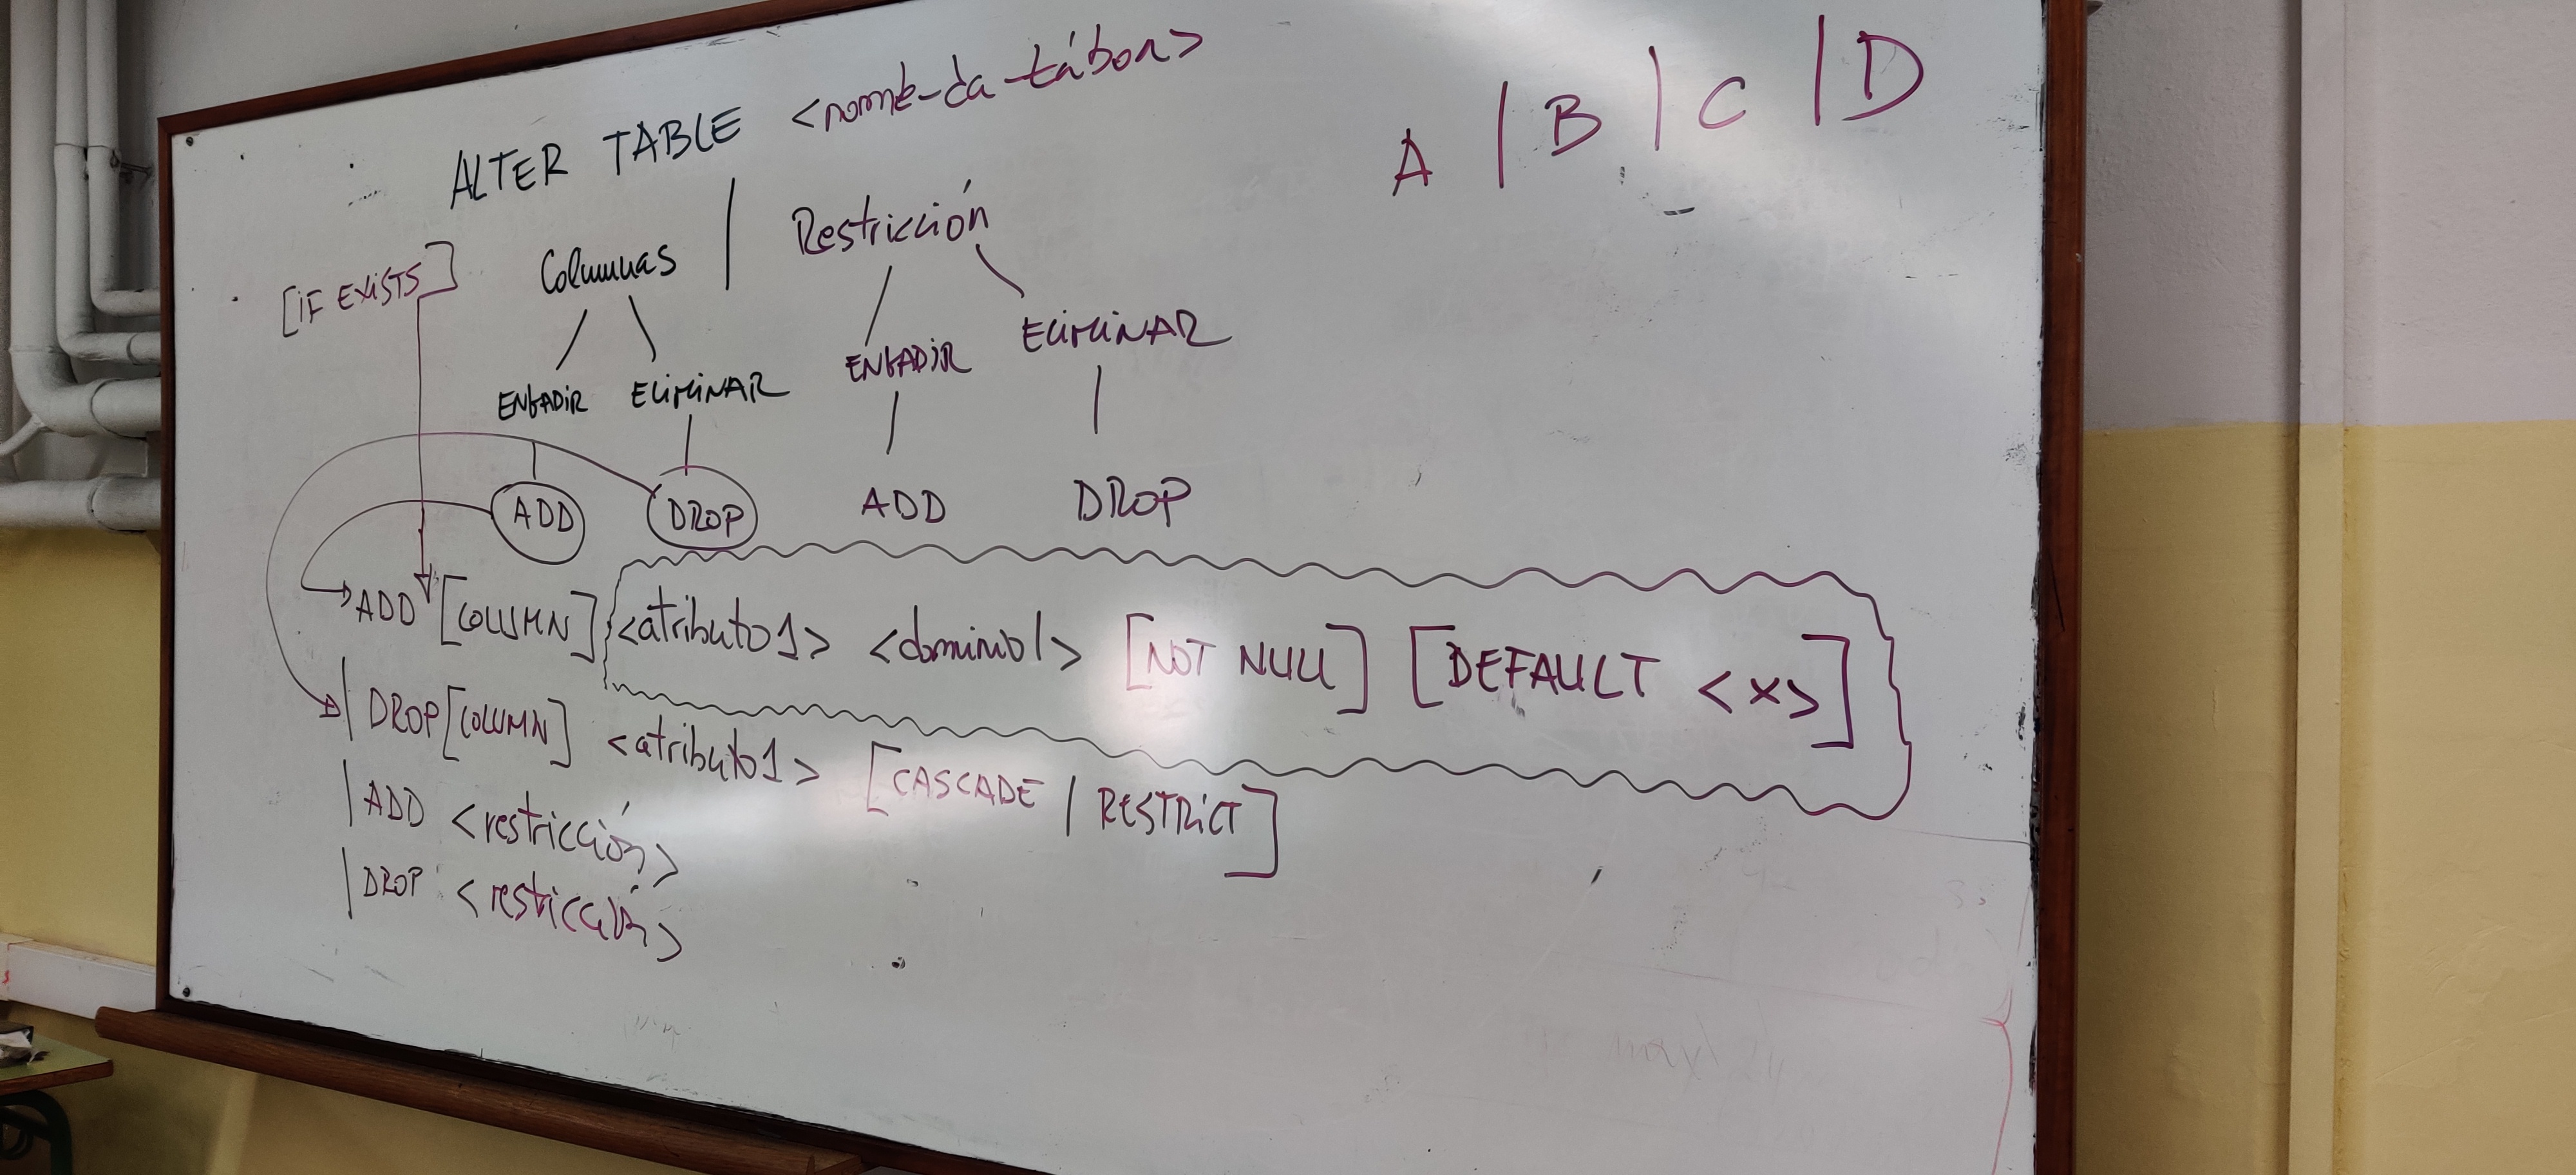 ALTER TABLE <nome-da-táboa>
A | B | C | D
Columnas | Restricción
[IF EXISTS]
ENGADIR ELIMINAR ENGADIR ELIMINAR
ADD DROP ADD DROP
ADD [COLUMN] <atributo1> <dominio1> [NOT NULL] [DEFAULT <x>]
| DROP [COLUMN] <atributo1> [CASCADE | RESTRICT]
| ADD <restricción>
| DROP <restricción>